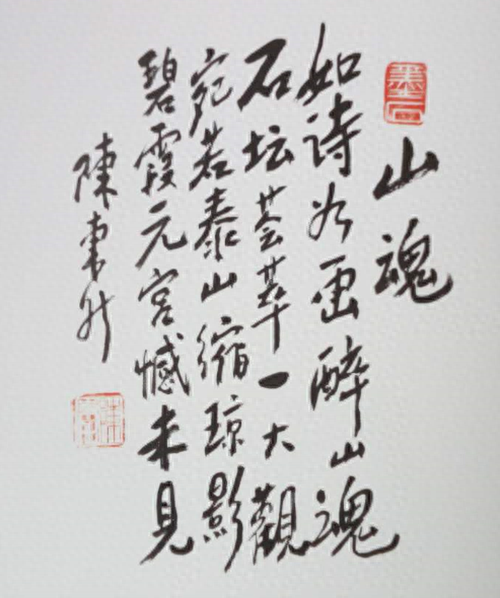 墨石
山魂
如诗如画醉山魂
石坛荟萃一大觀
宛若泰山缩琼影
碧霞元宫憾未見
陳東升